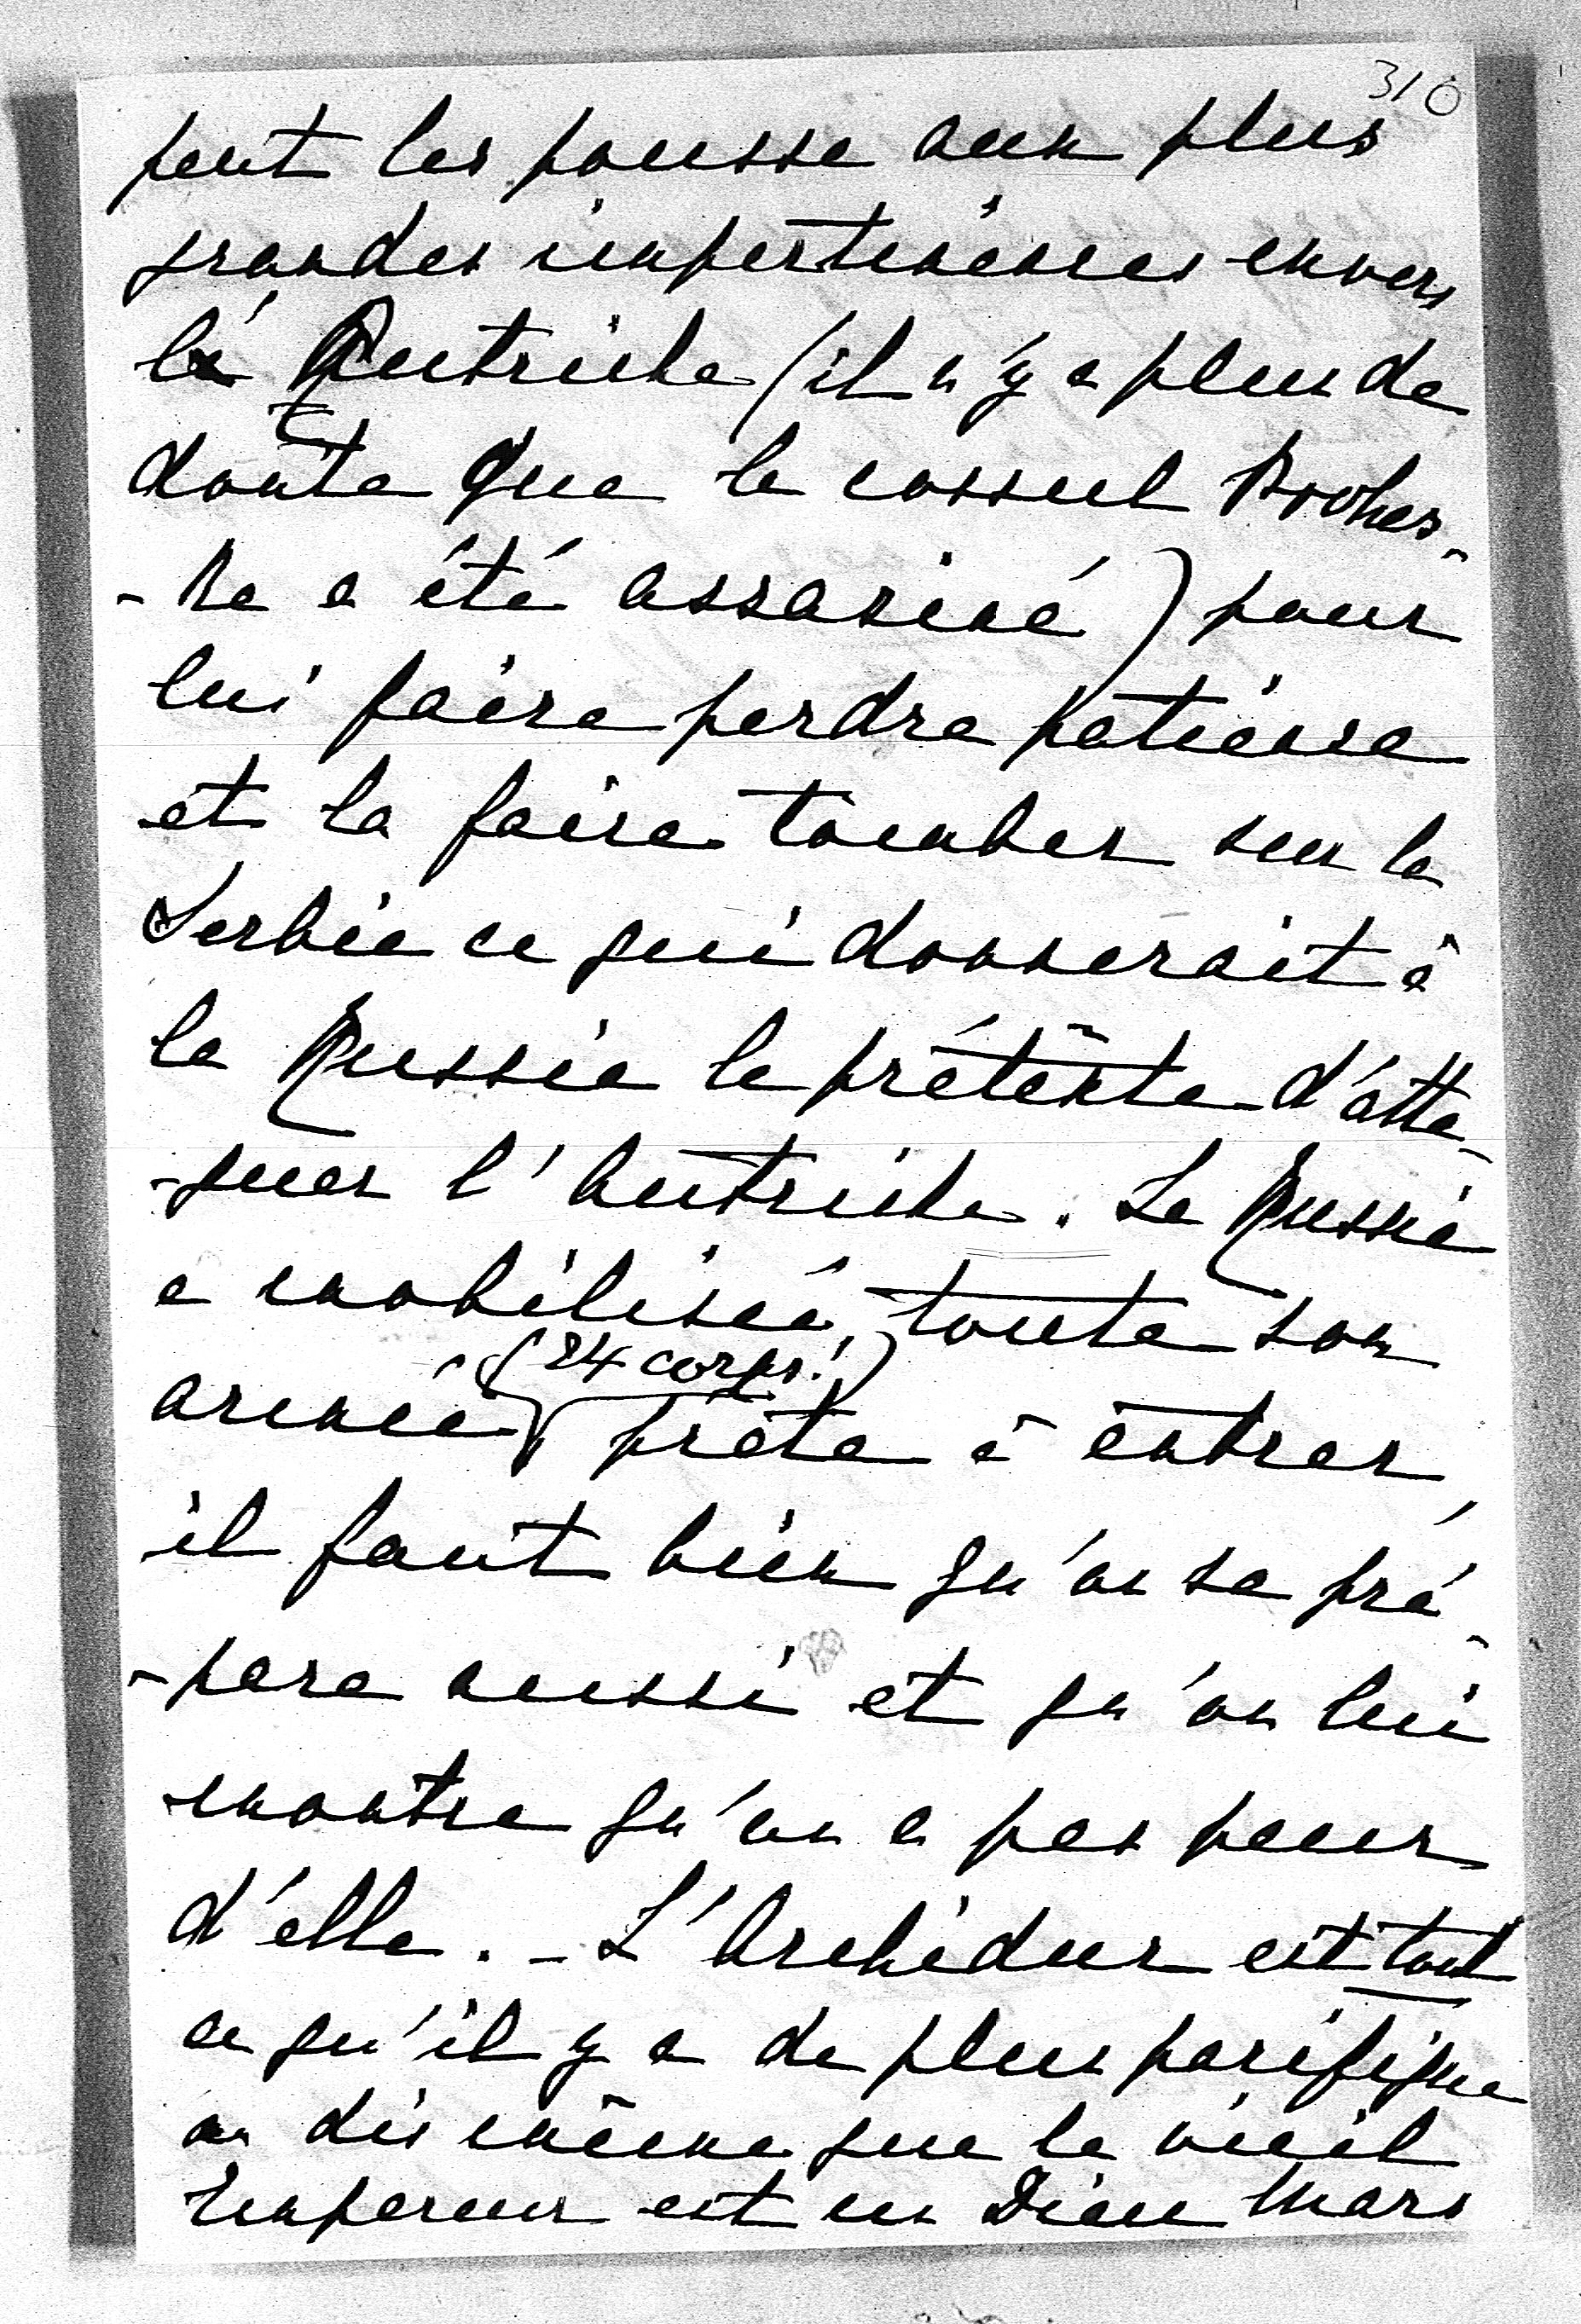 310
peut les pousse aux plus
grandes impertinences envers
l'Autriche (il n'y a plus de
doute que le consul Prohas-
-ka a été assasiné) pour
lui faire perdre patience
et la faire tomber sur la
Serbie ce qui donnerait à
la Russie le prétexte d'atta-
-quer l'Autriche. La Russie
a mobilisée toute son
(24 corps!)
armée prête à entrer,
il faut bien qu'on se pré-
-pare aussi et qu'on lui
montre qu'on a pas peur
d'elle. - L'Archiduc est tout
ce qu'il y a de plus pacifique
on dis même que le vieil
Empereur est un Dieu Mars